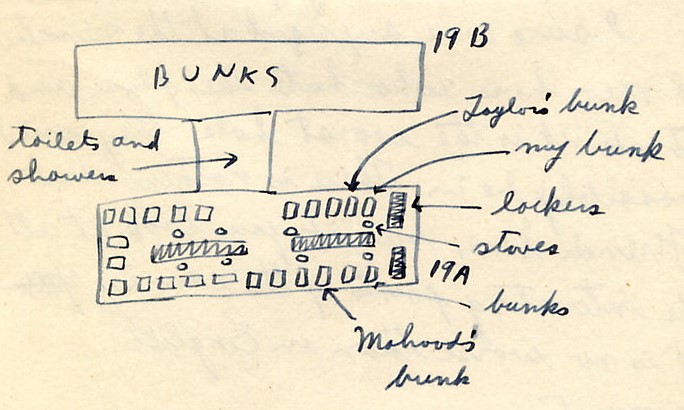 19 B
BUNKS
Taylor's bunk
toilets and
showers
my bunk
lockers
stoves
19A
bunks
Mahood's
bunk